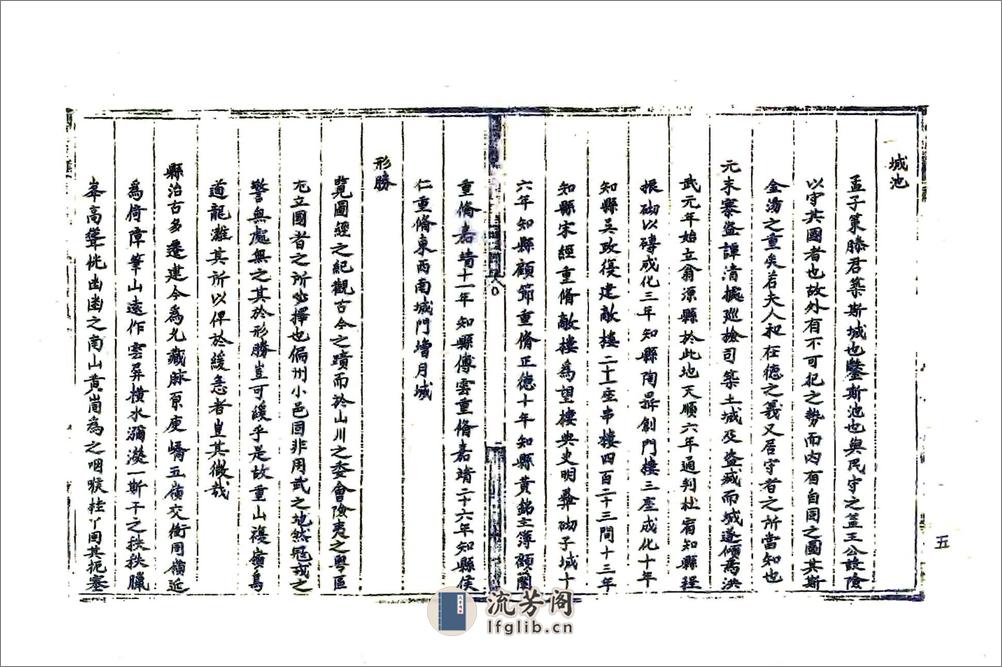 城池
孟子策滕君築斯城也鑿斯池也與民守之蓋王公設險
以守其國者也故外有不可犯之勢而內有自固之圖其斯
金湯之重矣若夫人和在德之義又居守者之所當知也
元末寨盜譚清據巡檢司築土城及盜滅而城遂傾焉洪
武元年始立翁源縣於此地天順六年通判杜宥知縣程
振砌以磚成化三年知縣陶鼎創門樓三座成化十年
知縣吳政復建敵樓二十二座串樓四百二十三間十三年
知縣宋經重脩敵樓為望樓典史明彝砌子城十
六年知縣顧節重脩正德十年知縣黃銘主簿顏蘭
重脩嘉靖十一年知縣傅雲重脩嘉靖二十六年知縣侯
仁重脩東西南城門增月城
形勝
覽圖經之紀觀古今之蹟而於山川之委會險夷之粤區
尤立國者之所必擇也偏州小邑固非用武之地然冠戎之
警無處無之其於形勝豈可緩乎是故重山複嶺為
道龍灘其所以俾於緩急者豈其微哉
縣治古多遷建今為尤藏脉原庾嶠五嶺交衝用嶺近
為倚障筆山遠作雲屏橫水瀰瀠一斯干之秩秩臘
峯高聳侊幽幽之南山黃崗為之咽喉桂丫固其扼塞
五
流芳阁
lfglib.cn